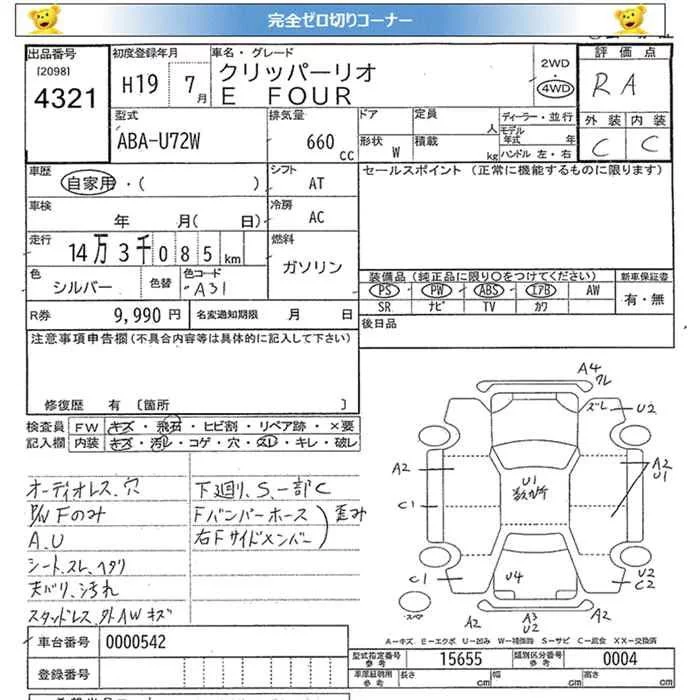 完全ゼロ切りコーナー
出品番号
[2098]
4321
初度登録年月
H19 7月
車名・グレード
クリッパーリオ
E FOUR
2WD
4WD
評価点
RA
外装 内装
C C
型式
ABA-U72W
排気量
660 cc
ドア
定員
人
形状
W
積載
kg
ディーラー・並行
モデル年式 年
ハンドル 左・右
車歴
自家用・( )
シフト
AT
セールスポイント (正常に機能するものに限ります)
車検
年 月( 日)
冷房
AC
走行
14万3千085km
燃料
ガソリン
色
シルバー
色替
色コード
A31
装備品(純正品に限り○をつけてください)
新車保証書
PS PW ABS エアB AW
有・無
SR ナビ TV カワ
R券
9,990 円
名変通知期限 月 日
後日品
注意事項申告欄(不具合内容等は具体的に記入して下さい)
修復歴 有 〔箇所 〕
検査員記入欄
FW キズ・飛石・ヒビ割・リペア跡・×要
内装 キズ・汚レ・コゲ・穴・スレ・キレ・破レ
オーディオレス、穴
P/W Fのみ
A.U
シート、スレ、ヘタリ
天バリ、汚れ
スタッドレス、外AWキズ
下廻り、S、一部C
Fバンパーホース
右Fサイドメンバー
歪み
A4
ワレ
ズレ
U2
A2
C1
C1
U1
数カ所
A2
U1
U4
U2
C2
スペア
A2
A3
U2
A2
A－キズ E－エクボ U－凹み W－補修跡 S－サビ C－腐食 XX－交換済
車台番号
0000542
登録番号
型式指定番号
参考
15655
類別区分番号
参考
0004
車庫証明用
参考
長さ cm
幅 cm
高さ cm